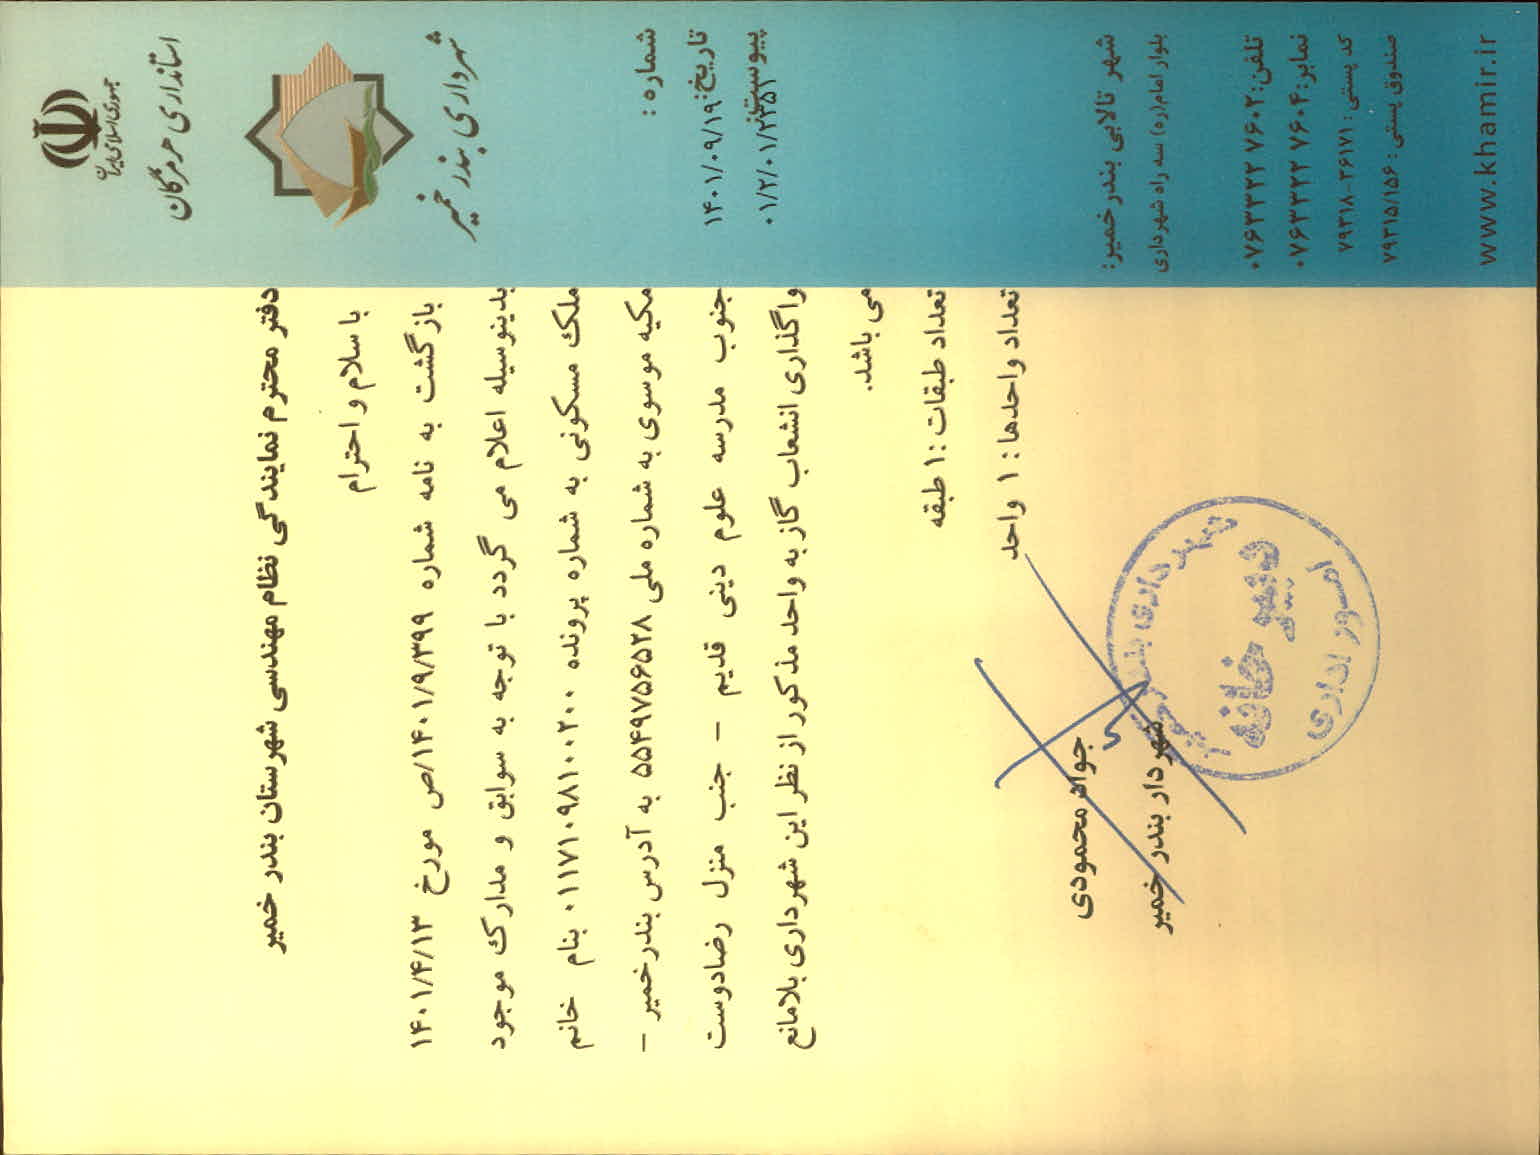 جمهوری اسلامی ایران
استانداری هرمزگان
شهرداری بندر خمیر
شماره :
تاریخ: ۱۴۰۱/۰۹/۱۹
پیوست:
شهر تالابی بندر خمیر:
بلوار امام(ره) سه راه شهرداری
تلفن: ۰۷۶۳۳۲۲ ۷۶۰۲
نمابر: ۰۷۶۳۳۲۲ ۷۶۰۴
کد پستی: ۷۹۳۱۸-۳۶۱۷۱
صندوق پستی: ۷۹۳۱۵/۱۵۶
www.khamir.ir
دفتر محترم نمایندگی نظام مهندسی شهرستان بندر خمیر
با سلام و احترام
بازگشت به نامه شماره ۱۴۰۱/۹/۳۹۹/ص مورخ ۱۴۰۱/۴/۱۳
بدینوسیله اعلام می گردد با توجه به سوابق و مدارک موجود
ملک مسکونی به شماره پرونده ۰۱۱۷۱۰۹۸۱۰۰۲۰۰ بنام خانم
مکیه موسوی به شماره ملی ۵۵۴۹۷۵۶۵۲۸ به آدرس بندرخمیر -
جنوب مدرسه علوم دینی قدیم - جنب منزل رضادوست
واگذاری انشعاب گاز به واحد مذکور از نظر این شهرداری بلامانع
می باشد.
تعداد طبقات :۱ طبقه
تعداد واحدها : ۱ واحد
جواد محمودی
شهردار بندر خمیر
شهرداری بندر خمیر
دبیرخانه
امور اداری